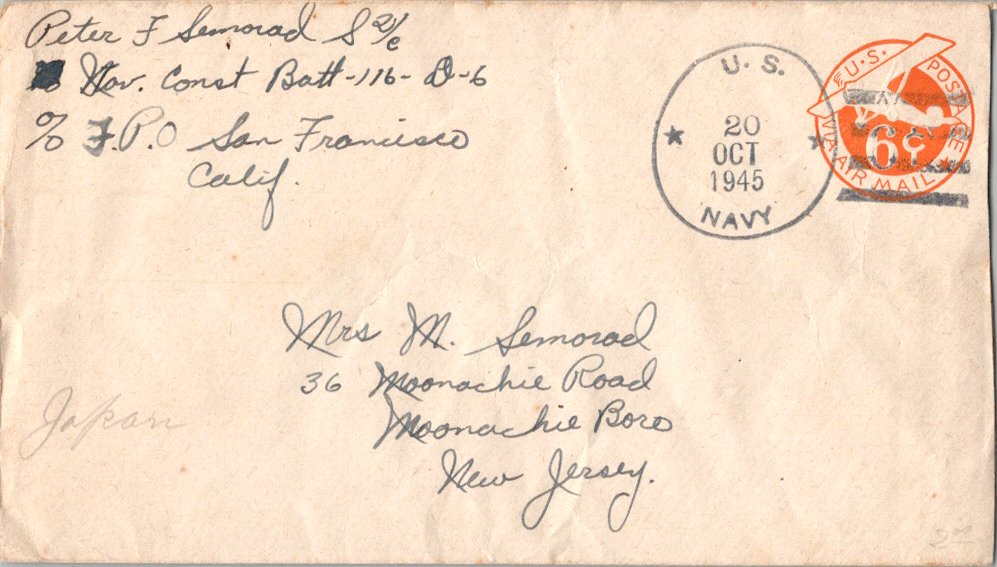 Peter F Semorad S 2/c
Nav. Const Batt-116-D-6
c/o F.P.O San Francisco
Calif.
U. S.
20
OCT
1945
NAVY
U.S. POSTAGE
6¢
VIA AIR MAIL
Mrs M. Semorad
36 Moonachie Road
Moonachie Boro
New Jersey.
Japan
2⁰⁰